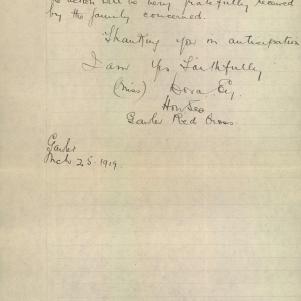 will be very gratefully received
by the family concerned.
Thanking you in anticipation
I am Yrs Faithfully
(Miss) Dora Ey.
Hon Sec
Gawler Red Cross
Gawler
Mch 25. 1919.